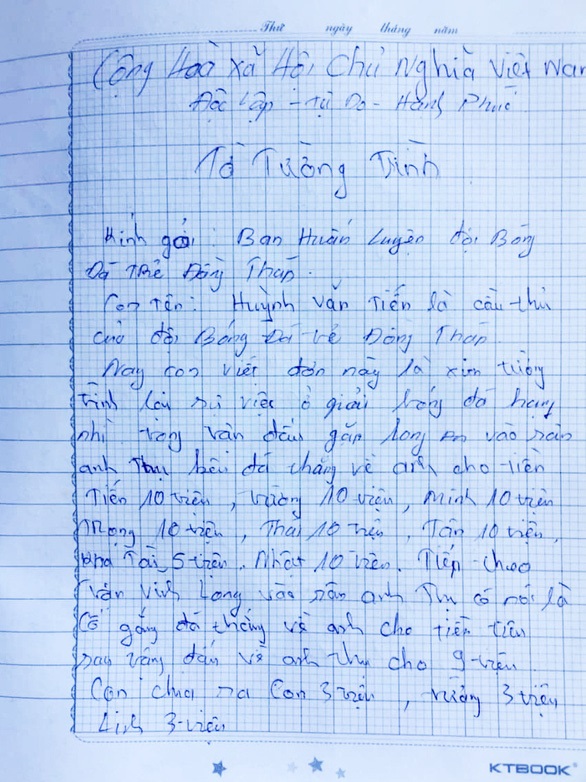 Thứ ngày tháng năm
Cộng Hoà Xã Hội Chủ Nghĩa Việt Nam
Độc Lập - Tự Do - Hạnh Phúc
Tờ Tường Trình
Kính gởi: Ban Huấn Luyện đội Bóng
Đá Trẻ Đồng Tháp.
Con Tên: Huỳnh Văn Tiến là cầu thủ
của đội Bóng Đá trẻ Đồng Tháp.
Nay con viết đơn này là xin tường
trình lại sự việc ở giải bóng đá hạng
nhì trong trận đấu gặp Long An vào sân
anh Thu kêu đá thắng về anh cho tiền
Tiến 10 triệu, Vương 10 triệu, Minh 10 triệu
Trọng 10 triệu, Thái 10 triệu, Tân 10 triệu,
Khả Tài 5 triệu. Nhật 10 triệu. Tiếp theo
trận Vĩnh Long vào sân anh Thu có nói là
Cố gắng đá thắng về anh cho tiền tiêu
sau trận đấu về anh Thu cho 9 triệu.
Con chia ra Con 3 triệu, Vương 3 triệu
Linh 3 triệu
KTBOOK